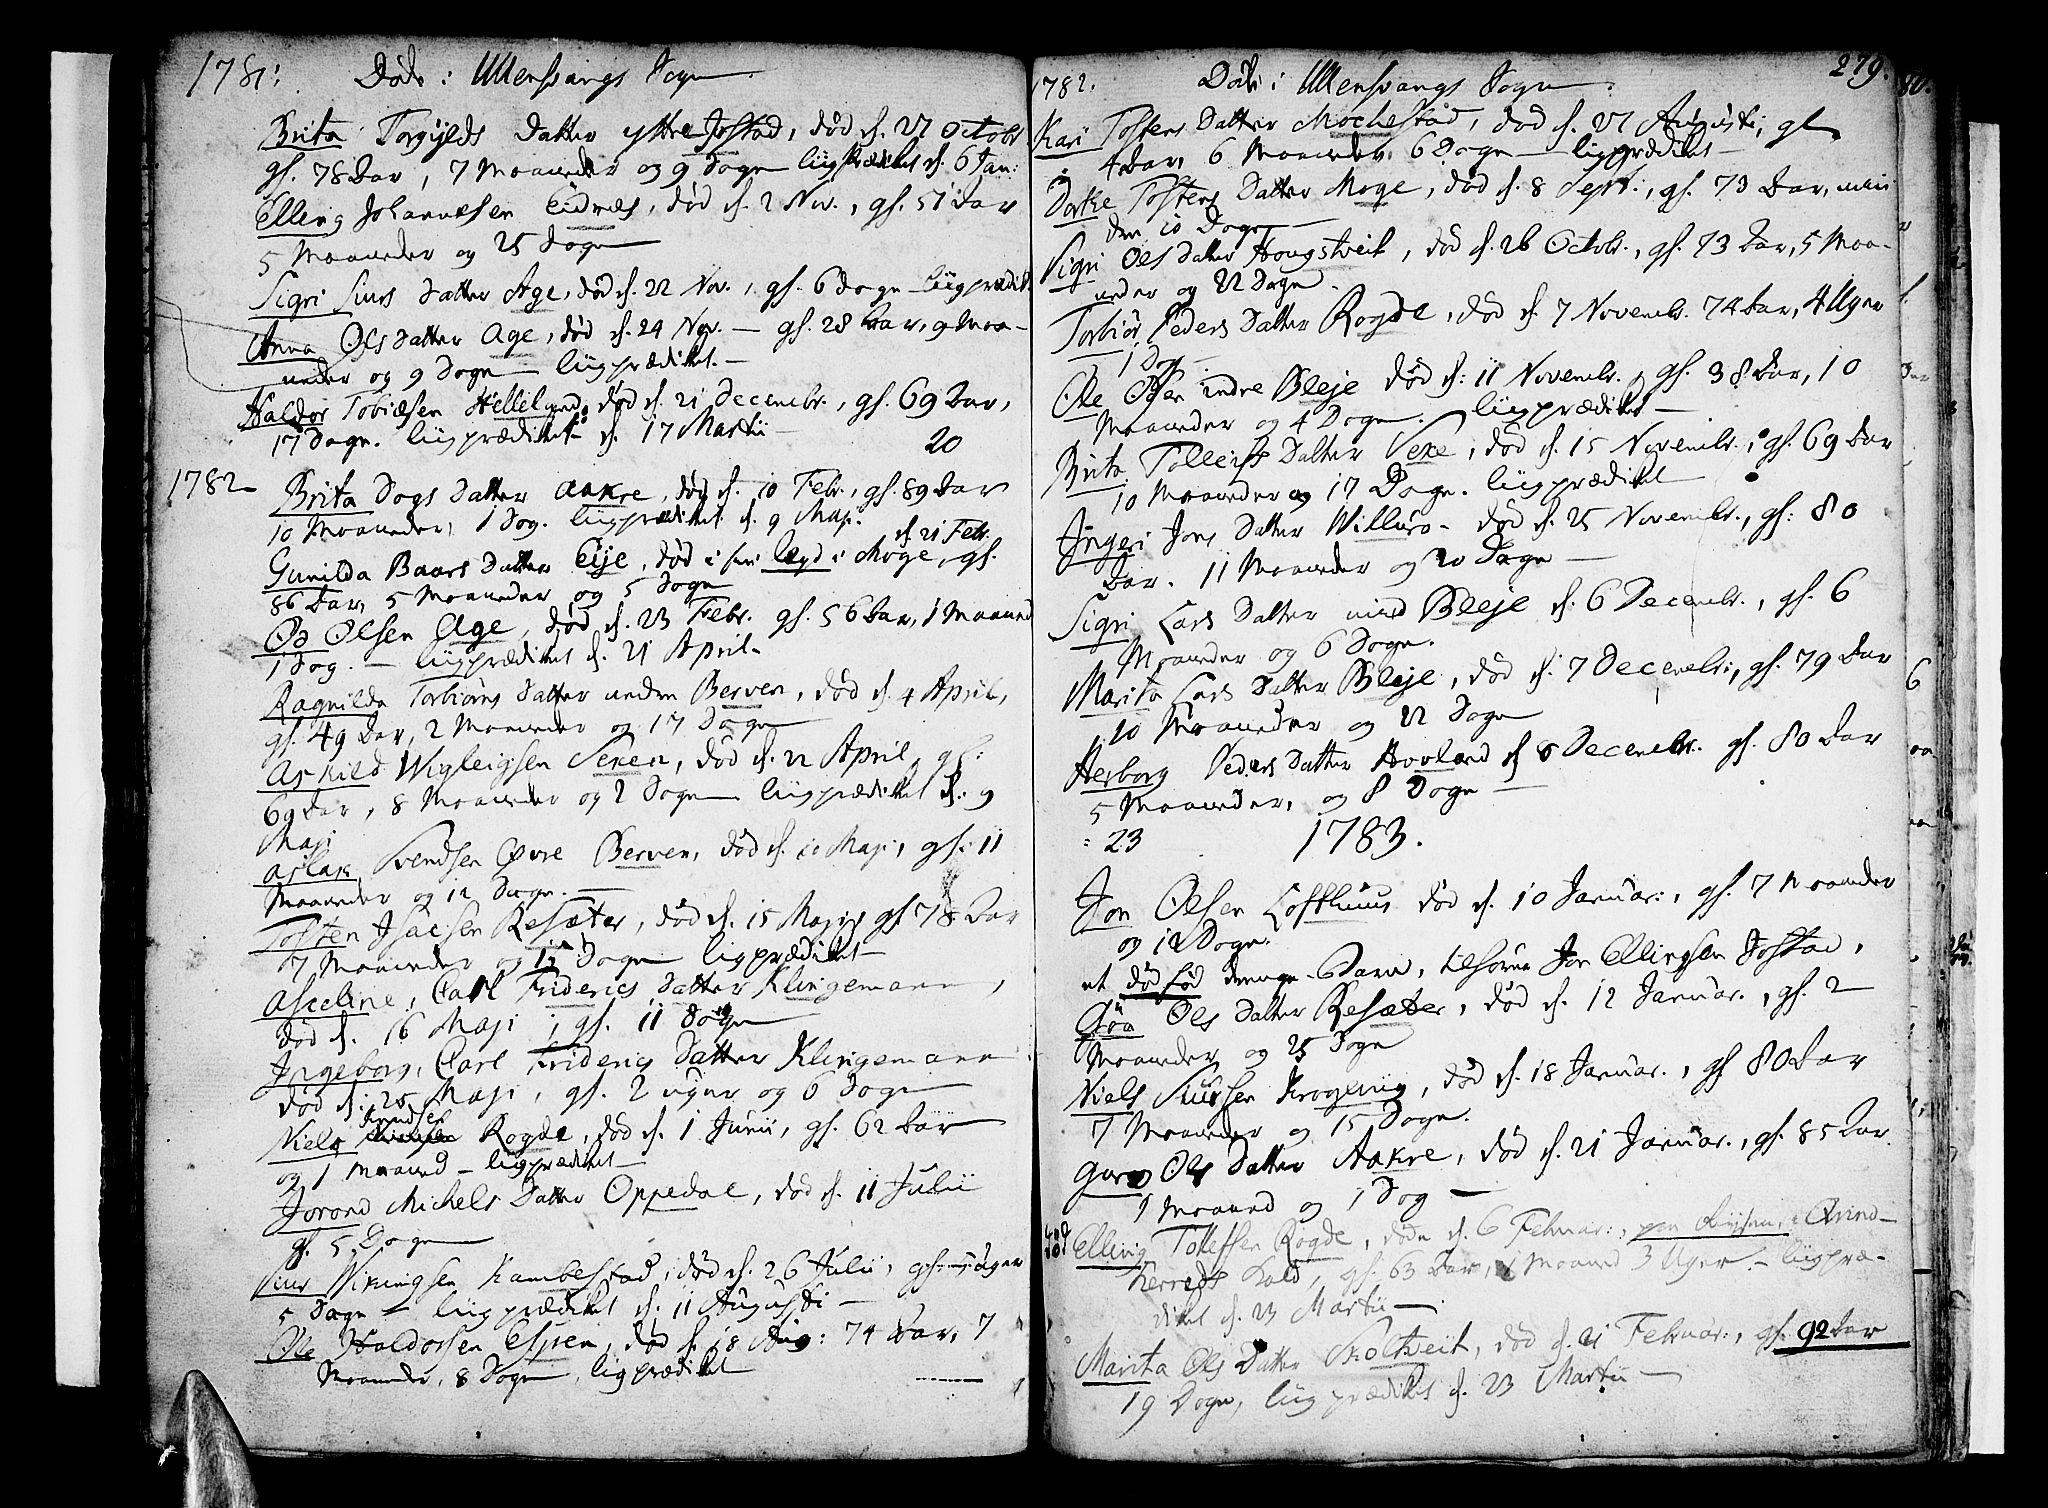 1781. Døde i Ullensvangs Sogn.
Brita Torgylds Datter yttre Jostad, død d. 27 Octobr
gl. 78 Aar, 7 Maaneder og 9 Dage liigprædiket d. 6 Jan:
Elling Johannesen Eidnes, død d. 2 Nov., gl. 51 Aar
5 Maaneder og 25 Dage
Sigri Siurs Datter Age, død d. 22 Nov., gl. 6 Dage liigprædik.
Anna Ols Datter Age, død d. 24 Nov. — gl. 28 Aar, 9 Maa-
neder og 9 Dage — liigprædiket. —
Haldor Tobiæsen Hellel, død d. 21 Decembr., gl. 69 Aar,
17 Dage. liigprædiket d. 17 Martii
20
1782 Brita Dags Datter Aakre, død d. 10 Febr., gl. 89 Aar
10 Maaneder, 1 Dag. liigprædiket d. 9 Maji.
d. 21 Febr.
Gunilda Baars Datter Eije, død i sin lægd i Moge, gl.
86 Aar, 5 Maaneder og 5 Dage
Od Olsen Age, død d. 23 Febr. gl. 56 Aar, 1 Maaned
1 Dag. — liigprædiket d. 21 April.
Ragnilda Torbiørns Datter nedre Berven, død d. 4 April,
gl. 49 Aar, 2 Maaneder og 17 Dage
Askild Wigleigsen Sexen, død d. 22 April, gl:
69 Aar, 8 Maaneder og 2 Dage liigprædiket d. 9
Maji
Aslak Svendsen Øvre Berven, død d. 10 Maji, gl. 11
Maaneder og 12 Dage. —
Tosten Isacsen Resæter, død d. 15 Maji gl 78 Aar
7 Maaneder og 15 Dage liigprædiket —
Asceline, Carl Friderics Datter Klingemann,
død d. 16 Maji, gl. 11 Dage
Ingeborg, Carl Friderics Datter Klingemann
død d. 25 Maji, gl. 2 uger og 6 Dage
Niels Knudsen Rogde, død d. 1 Junii, gl. 62 Aar
og 1 Maaned — liigprædiket —
Jorond Michels Datter Oppedal, død d. 11 Julii
gl. 5 Dage
Siur Wikingsen Kambestad, død d. 26 Julii, gl. uger
5 Dage — liigprædiket d. 11 Augusti —
Ole Haldorsen Espen, død d. 18 Aug: 74 Aar, 7
Maaneder, 8 Dage, liigprædiket
279.
1782. Døde i Ullensvangs Sogn.
Kari Tostens Datter Mochestad, død d. 27 Augusti, gl
4 Aar, 6 Maaneder, 6 Dage — liigprædiket —
Dorte Tostens Datter Moge, død d. 8 Sept:, gl. 73 Aar, min
dre 10 Dage
Sigri Ols Datter Hougstveit, død d. 26 Octobr., gl. 73 Aar, 5 Maa-
neder og 22 Dage.
Torbiør Peders Datter Rogde, død d. 7 Novembr. 74 Aar, 4 Uger
1 Dag.
Ole Olsen indre Bleje død d: 11 Novembr., gl. 38 Aar, 10
Maaneder og 4 Dage. liigprædiket —
Brita Tolleifs Datter Sexe, død d. 15 Novembr., gl. 69 Aar
10 Maaneder og 17 Dage. liigprædiket
Ingeri Jons Datter Willuro — død d. 25 Novembr., gl: 80
Aar. 11 Maaneder og 20 Dage —
Sigri Lars Datter Bleje d. 6 Decembr., gl. 6
Maaneder og 6 Dage.
Marita Lars Datter Bleje, død d. 7 Decembr:, gl. 79 Aar
10 Maaneder og 22 Dage
Herborg Peders Datter Hovland d 8 Decembr. gl. 80 Aar
5 Maaneder, og 8 Dage —
23 1783.
Jon Olsen Lofthuus død d. 10 Januar:, gl. 7 Maaneder
og 12 Dage.
et død fød drenge-Barn, tilhørende Jon Ellingsen Jostad,
Gøa Ols Datter Resæter, død d. 12 Januar., gl. 2
Maaneder og 25 Dage
Niels Siursen Krogeviig, død d. 18 Januar., gl 80 Aar
7 Maaneder og 15 Dage.
Guro Ols Datter Aakre, død d. 21 Januar., gl. 85 Aar
1 Maaned og 1 Dag —
Elling Tollefsen Rogde, døde d. 6 Februar:, paa Reysen, i Qvind-
herreds Kald, gl. 63 Aar, 1 Maaned 3 Uger. — liigpræ-
diket d. 23 Martii —
Marita Ols Datter Skoltveit, død d. 21 Februar:, gl. 92 Aar
19 Dage, liigprædiket d. 23 Martii —